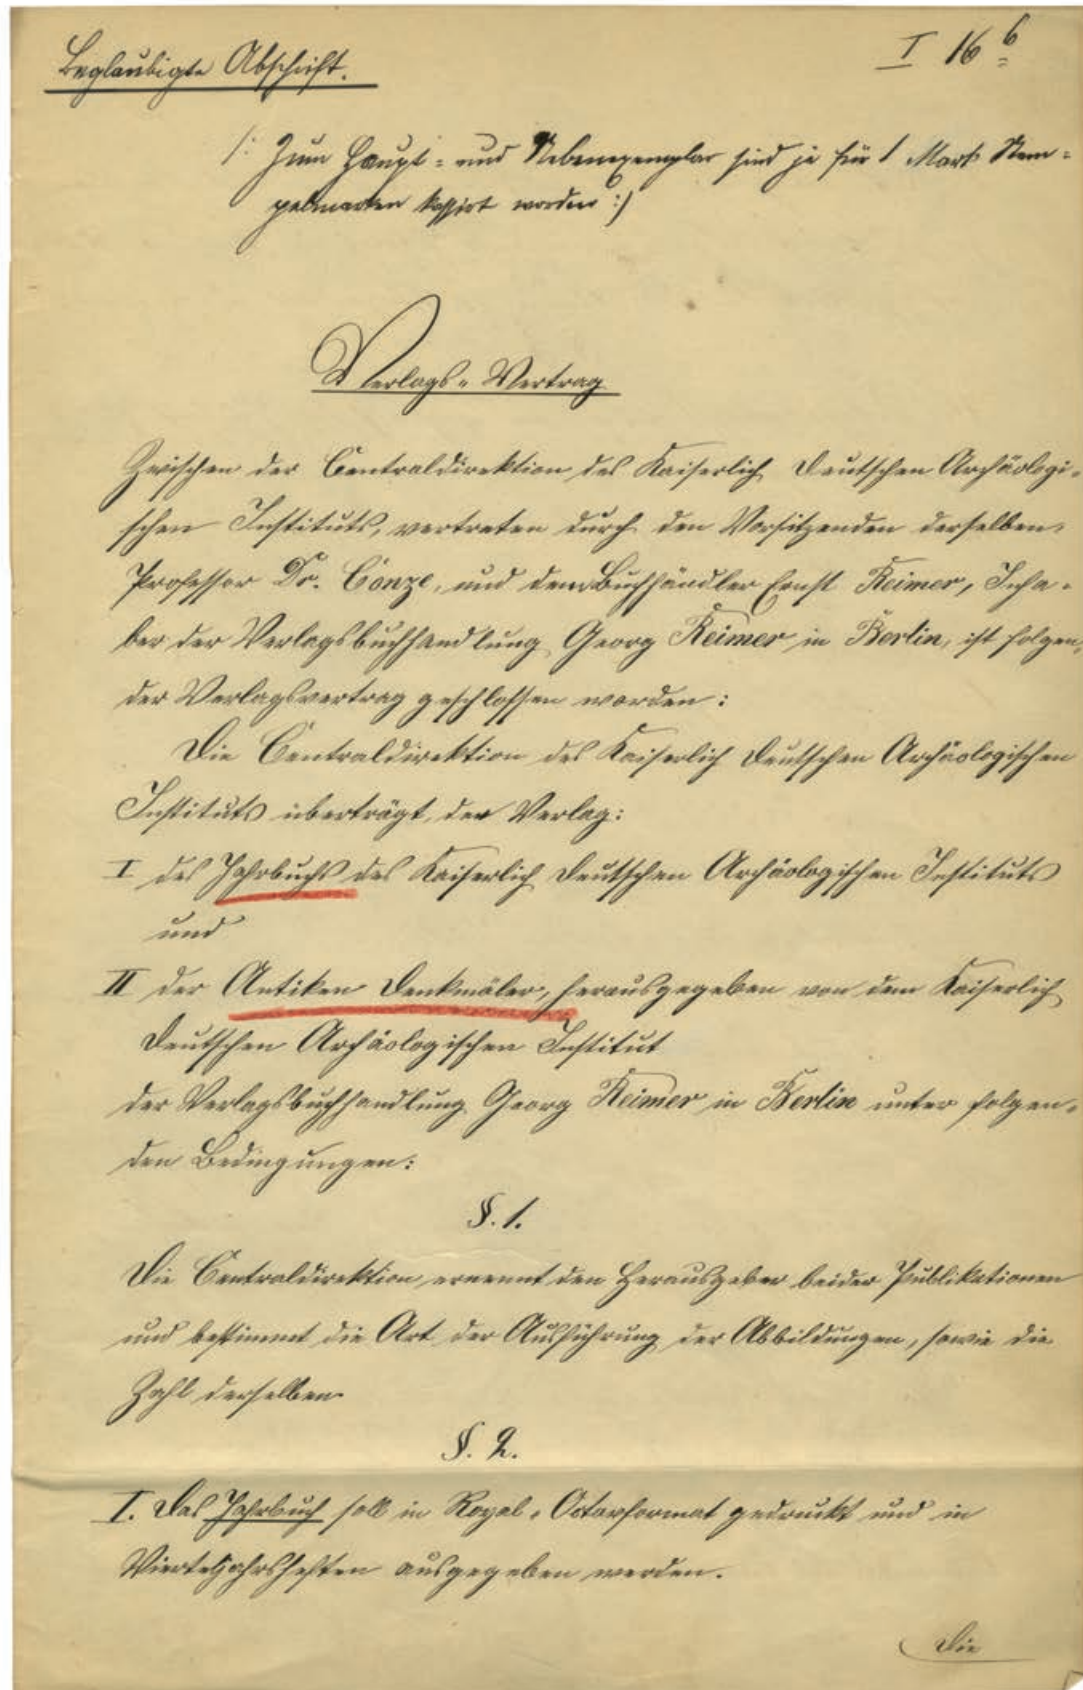 Beglaubigte Abschrift.
I 16 b
/: Zum Haupt- und Nebenexemplar sind je für 1 Mark Stem-
pelmarken kassirt worden :/
Verlags-Vertrag
Zwischen der Centraldirektion des Kaiserlich Deutschen Archäologi-
schen Instituts, vertreten durch den Vorsitzenden derselben,
Professor Dr. Conze, und dem Buchhändler Ernst Reimer, Inha-
ber der Verlagsbuchhandlung Georg Reimer in Berlin, ist folgen-
der Verlagsvertrag geschlossen worden:
Die Centraldirektion des Kaiserlich Deutschen Archäologischen
Instituts überträgt den Verlag:
I des Jahrbuchs des Kaiserlich Deutschen Archäologischen Instituts
und
II der Antiken Denkmäler, herausgegeben von dem Kaiserlich
Deutschen Archäologischen Institut
der Verlagsbuchhandlung Georg Reimer in Berlin unter folgen-
den Bedingungen:
§. 1.
Die Centraldirektion ernennt den Herausgeber beider Publikationen
und bestimmt die Art der Ausführung der Abbildungen, sowie die
Zahl derselben.
§. 2.
I. Das Jahrbuch soll in Royal-Octavformat gedruckt und in
Vierteljahrsheften ausgegeben werden.
Die